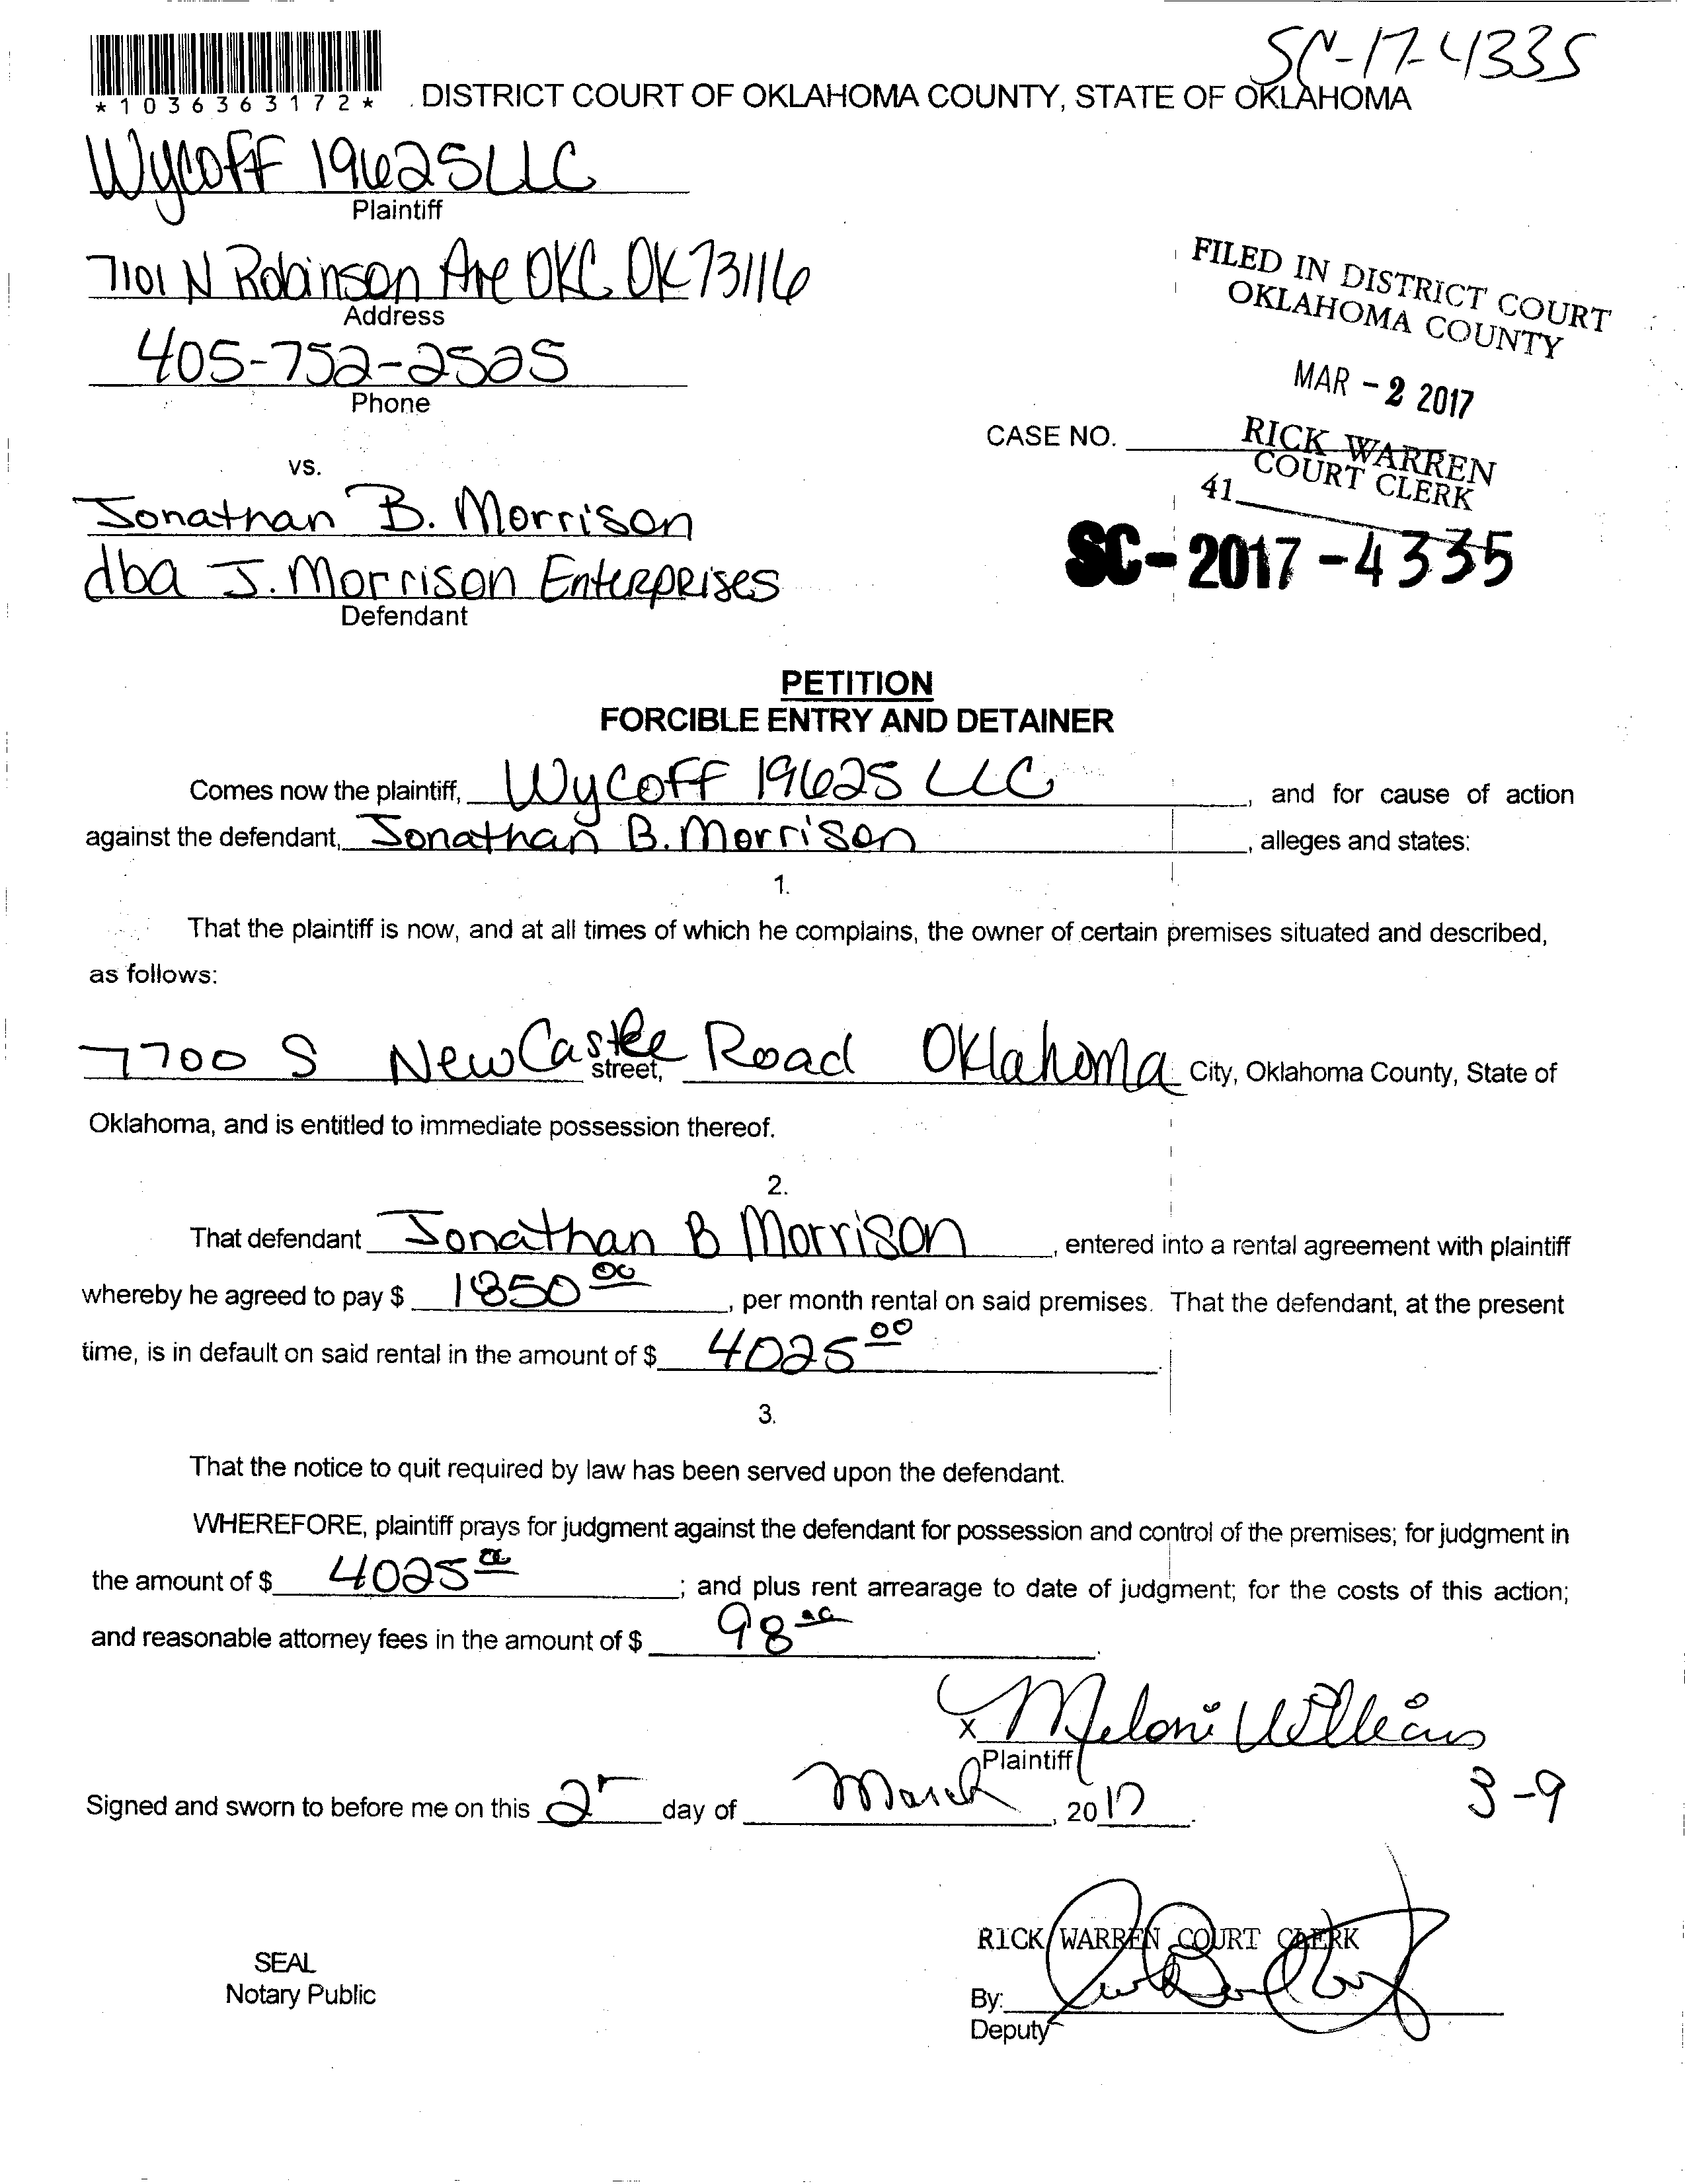 SC-17-4335
*1036363172*
DISTRICT COURT OF OKLAHOMA COUNTY, STATE OF OKLAHOMA
Wycoff 19625 LLC
Plaintiff
7101 N Robinson Ave OKC OK 73116
Address
405-752-2525
Phone
FILED IN DISTRICT COURT
OKLAHOMA COUNTY
MAR - 2 2017
RICK WARREN
COURT CLERK
41
CASE NO.
SC-2017-4335
vs.
Jonathan B. Morrison
dba J. Morrison Enterprises
Defendant
PETITION
FORCIBLE ENTRY AND DETAINER
Comes now the plaintiff, Wycoff 19625 LLC, and for cause of action
against the defendant, Jonathan B. Morrison, alleges and states:
1.
That the plaintiff is now, and at all times of which he complains, the owner of certain premises situated and described,
as follows:
7700 S NewCastle street, Road Oklahoma City, Oklahoma County, State of
Oklahoma, and is entitled to immediate possession thereof.
2.
That defendant Jonathan B Morrison, entered into a rental agreement with plaintiff
whereby he agreed to pay $ 1850 00, per month rental on said premises. That the defendant, at the present
time, is in default on said rental in the amount of $ 4025 00.
3.
That the notice to quit required by law has been served upon the defendant.
WHEREFORE, plaintiff prays for judgment against the defendant for possession and control of the premises; for judgment in
the amount of $ 4025 00; and plus rent arrearage to date of judgment; for the costs of this action;
and reasonable attorney fees in the amount of $ 98 00.
x Meloni Williams
Plaintiff
3-9
Signed and sworn to before me on this 2 day of March, 2017.
RICK WARREN COURT CLERK
SEAL
Notary Public
By:
Deputy